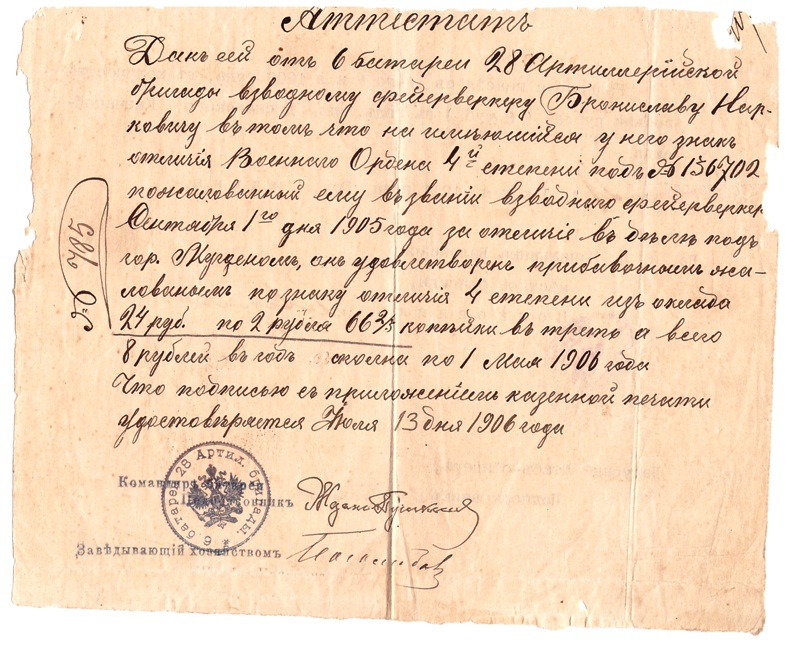 Аттестатъ
Данъ сей отъ 6 батареи 28 Артиллерійской
бригады взводному фейерверкеру Брониславу Нар-
ковичу въ томъ что на имѣющійся у него знакъ
отличія Военнаго Ордена 4й степени подъ № 156702
пожалованный ему въ званіи взводнаго фейерверкер
Сентября 1го дня 1905 года за отличіе въ дѣлѣ подъ
гор. Мукденомъ, онъ удовлетворенъ прибавочнымъ жа-
лованьемъ по знаку отличія 4 степени изъ оклада
24 руб. по 2 рубля 66 2/3 копѣйки въ треть а всего
8 рублей въ годъ сполна по 1 Мая 1906 года
Что подписью съ приложеніемъ казенной печати
удостовѣряется Іюля 13 дня 1906 года
№ 785
Командиръ батареи
Подполковникъ
Завѣдывающій хозяйствомъ
6 батарея 28 Артил. бригады